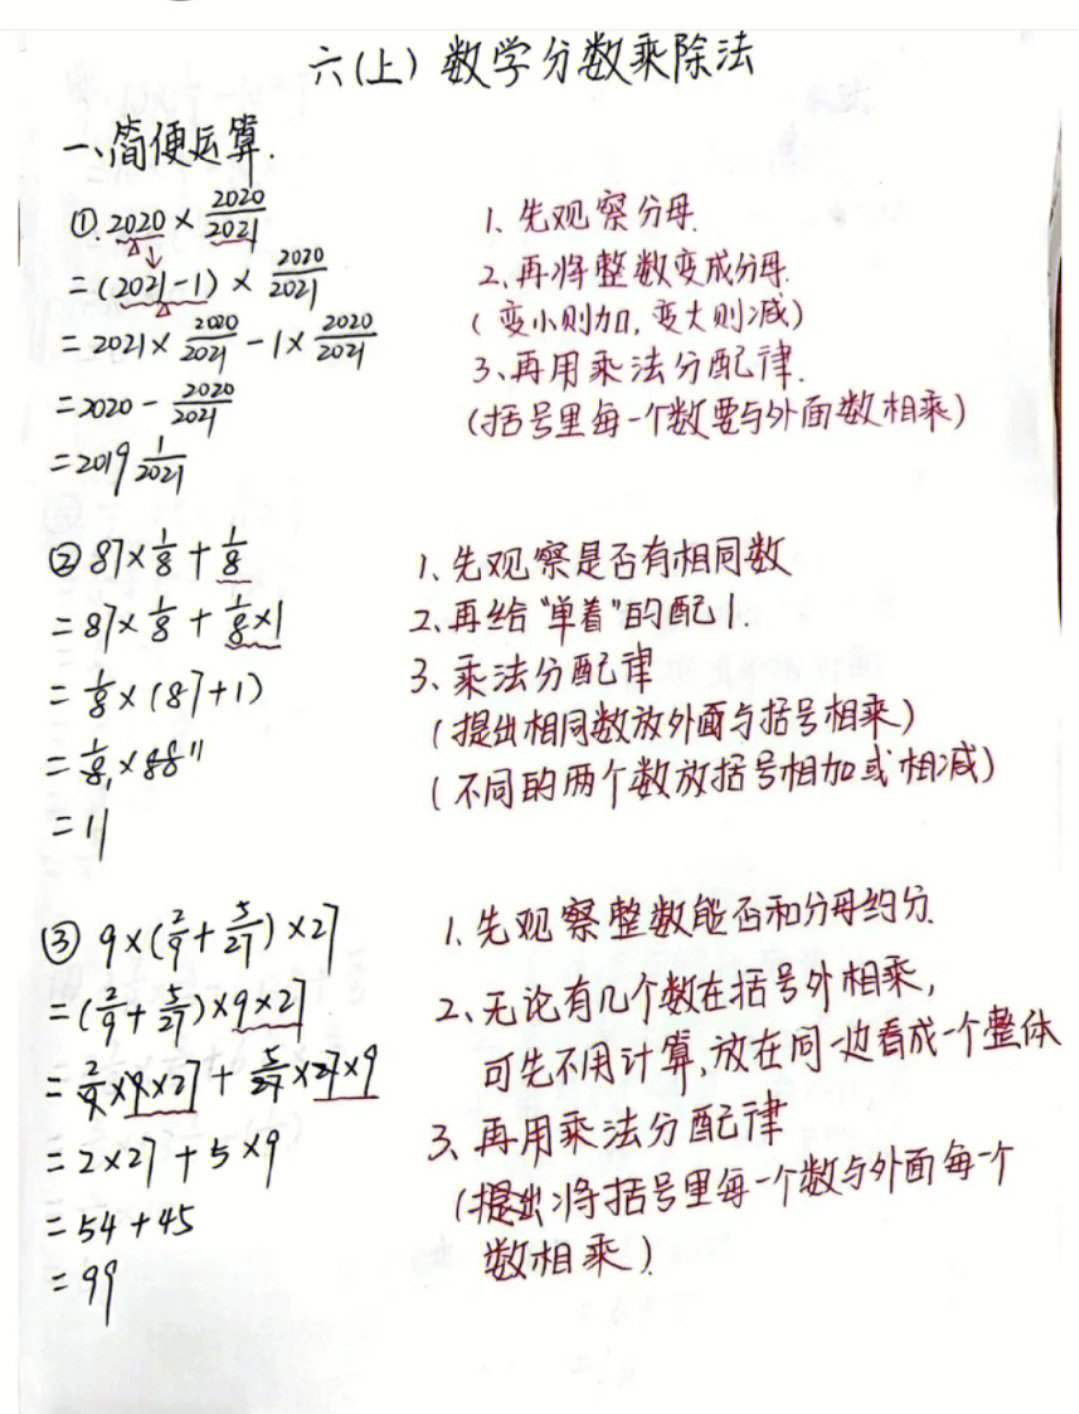 六(上) 数学分数乘除法
一、简便运算.
①. 2020 × 2020/2021
= (2021-1) × 2020/2021
= 2021 × 2020/2021 - 1 × 2020/2021
= 2020 - 2020/2021
= 2019 1/2021
1、先观察分母.
2、再将整数变成分母.
(变小则加,变大则减)
3、再用乘法分配律.
(括号里每一个数要与外面数相乘)
② 87 × 1/8 + 1/8
= 87 × 1/8 + 1/8 × 1
= 1/8 × (87+1)
= 1/8 1 × 88 11
= 11
1、先观察是否有相同数
2、再给“单着”的配1.
3、乘法分配律
(提出相同数放外面与括号相乘)
(不同的两个数放括号相加或相减)
③ 9 × (2/9 + 5/27) × 27
= (2/9 + 5/27) × 9 × 27
= 2/9 × 9 × 27 + 5/27 × 27 × 9
= 2 × 27 + 5 × 9
= 54 + 45
= 99
1、先观察整数能否和分母约分.
2、无论有几个数在括号外相乘,
可先不用计算,放在同一边看成一个整体
3、再用乘法分配律
(提出将括号里每一个数与外面每一个
数相乘)